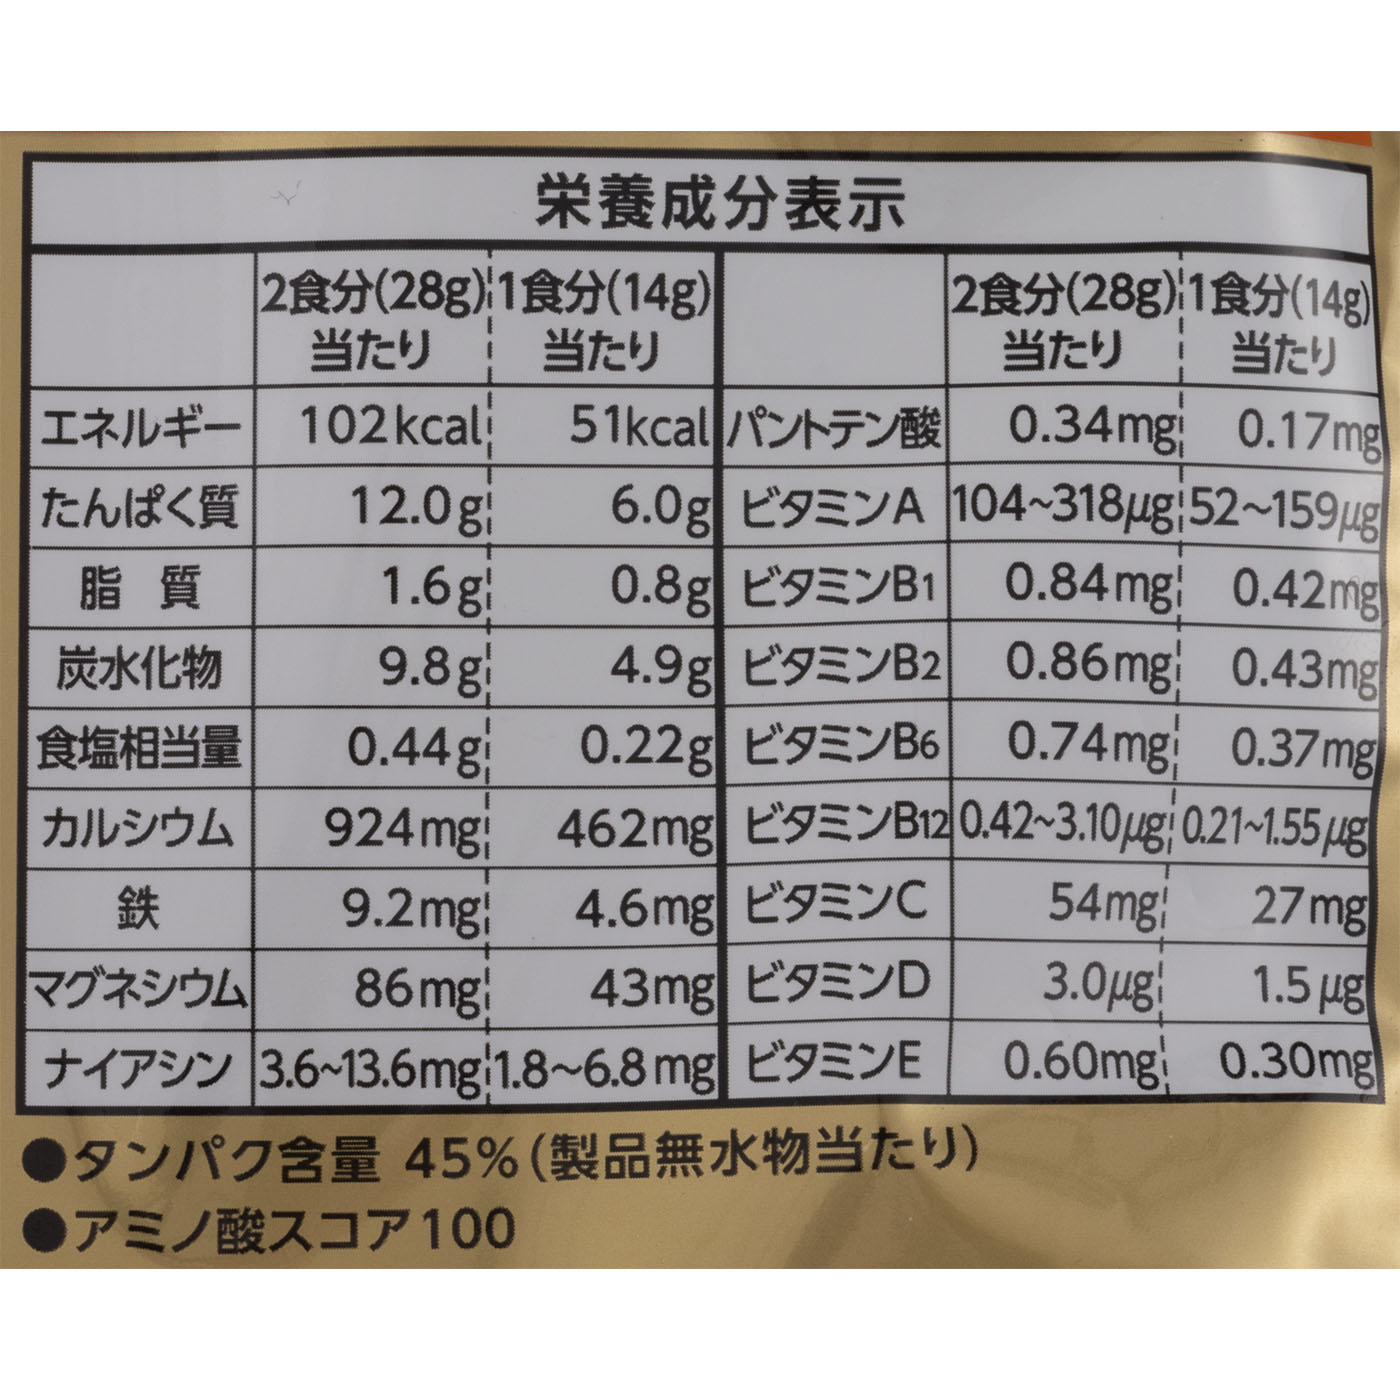 栄養成分表示
2食分(28g)当たり 1食分(14g)当たり 2食分(28g)当たり 1食分(14g)当たり
エネルギー 102kcal 51kcal パントテン酸 0.34mg 0.17mg
たんぱく質 12.0g 6.0g ビタミンA 104~318μg 52~159μg
脂 質 1.6g 0.8g ビタミンB1 0.84mg 0.42mg
炭水化物 9.8g 4.9g ビタミンB2 0.86mg 0.43mg
食塩相当量 0.44g 0.22g ビタミンB6 0.74mg 0.37mg
カルシウム 924mg 462mg ビタミンB12 0.42~3.10μg 0.21~1.55μg
鉄 9.2mg 4.6mg ビタミンC 54mg 27mg
マグネシウム 86mg 43mg ビタミンD 3.0μg 1.5μg
ナイアシン 3.6~13.6mg 1.8~6.8mg ビタミンE 0.60mg 0.30mg
●タンパク含量 45%(製品無水物当たり)
●アミノ酸スコア100